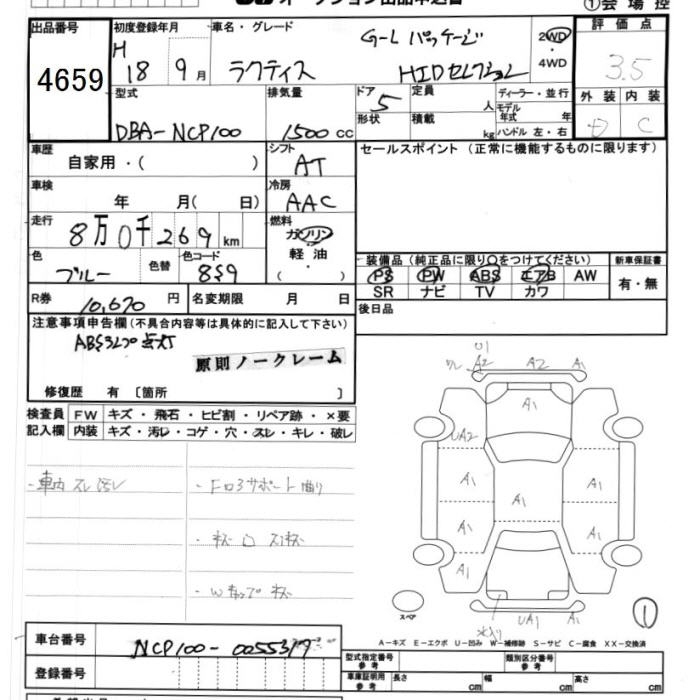 オークション出品申込書 ①会場控
出品番号 4659
初度登録年月 H 18 9月
車名・グレード G-L パッケージ
ラクティス HIDセレクション
2WD・4WD
評価点 3.5
外装 内装 C
型式 DBA-NCP100
排気量 1500cc
ドア 5
形状
定員 人
積載 kg
ディーラー・並行
モデル年式 年
ハンドル 左・右
車歴 自家用・( )
シフト AT
セールスポイント(正常に機能するものに限ります)
車検 年 月( 日)
冷房 AAC
走行 8万0千269km
燃料 ガソリン・軽油・( )
色 ブルー 色替 色コード 8S9
装備品(純正品に限り○をつけてください) 新車保証書
PS PW ABS エアB AW 有・無
SR ナビ TV カワ
R券 10,670円 名変期限 月 日
後日品
注意事項申告欄(不具合内容等は具体的に記入して下さい)
点灯
原則ノークレーム
修復歴 有 〔箇所 〕
検査員記入欄 FW キズ・飛石・ヒビ割・リペア跡・×要
内装 キズ・汚レ・コゲ・穴・スレ・キレ・破レ
・車内 スレ 汚レ
・Fロアサポート曲り
・Wキャップ キズ
A2 A2 A1
A1
UA2
A1 A1 A1
A1 A1
A1
UA1 A1
スペア
①
A-キズ E-エクボ U-凹み W-補修跡 S-サビ C-腐食 XX-交換済
車台番号 NCP100-0055319
型式指定番号 参考 類別区分番号 参考
登録番号
車庫証明用 参考 長さ cm 幅 cm 高さ cm